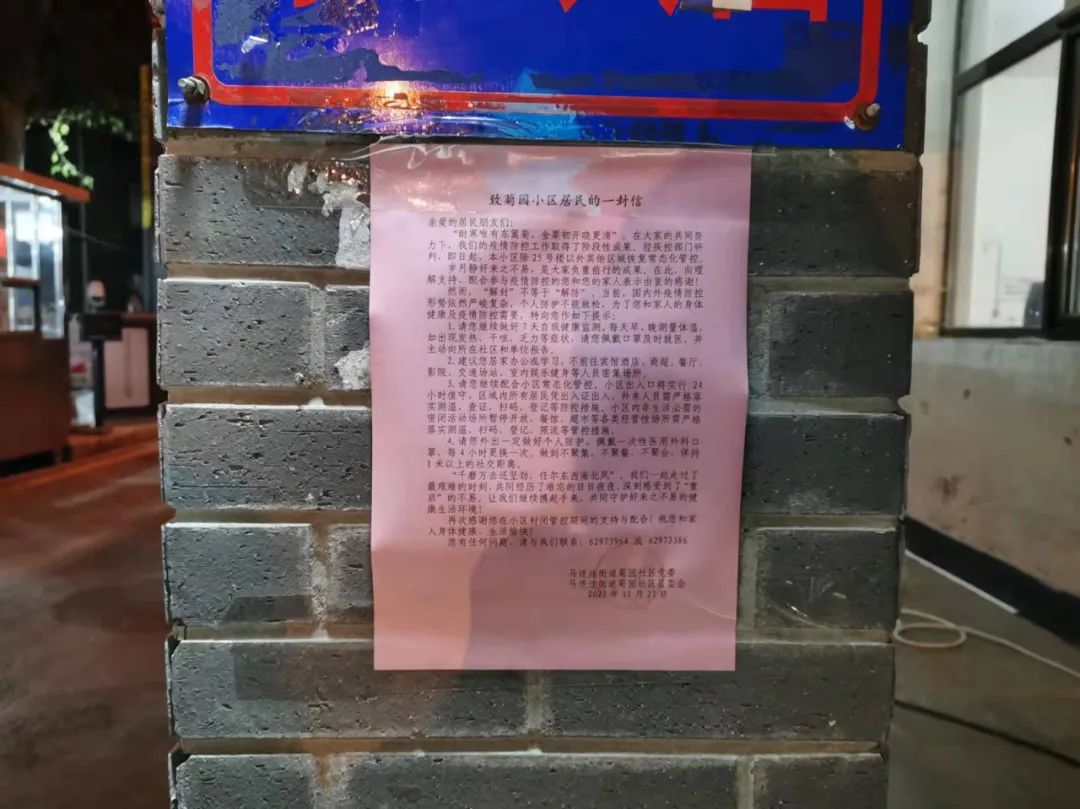 致菊园小区居民的一封信
亲爱的居民朋友们:
“耐寒唯有东篱菊,金粟初开晓更清”。在大家的共同努
力下,我们的疫情防控工作取得了阶段性成果。经疾控部门研
判,即日起,本小区除25号楼以外其他区域恢复常态化管控。
岁月静好来之不易,是大家负重前行的成果。在此,向理
解支持、配合参与疫情防控的您和您的家人表示由衷的感谢!
然而,“解封”不等于“解防”。当前,国内外疫情防控
形势依然严峻复杂,个人防护不能放松,为了您和家人的身体
健康及疫情防控需要,特向您作如下提示:
1.请您继续做好7天自我健康监测。每天早、晚测量体温,
如出现发热、干咳、乏力等症状,请您佩戴口罩及时就医,并
主动向所在社区和单位报告。
2.建议您居家办公或学习,不前往宾馆酒店、商超、餐厅、
影院、交通场站、室内娱乐健身等人员密集场所。
3.请您继续配合小区常态化管控。小区出入口将实行 24
小时值守,区域内所有居民凭出入证出入,外来人员需严格落
实测温、查证、扫码、登记等防控措施。小区内非生活必需的
密闭活动场所暂停开放,餐馆、超市等各类经营性场所需严格
落实测温、扫码、登记、限流等管控措施。
4.请您外出一定做好个人防护。佩戴一次性医用外科口
罩,每4小时更换一次。做到不聚集、不聚餐、不聚会,保持
1米以上的社交距离。
“千磨万击还坚劲,任尔东西南北风”。我们一起走过了
最艰难的时刻,共同经历了难忘的日日夜夜,深刻感受到了“重
启”的不易。让我们继续携起手来,共同守护好来之不易的健
康生活环境!
再次感谢您在小区封闭管控期间的支持与配合!祝您和家
人身体健康、生活愉快!
您有任何问题,请与我们联系:62973964 或 62973386
马连洼街道菊园社区党委
马连洼街道菊园社区居委会
2021年11月21日